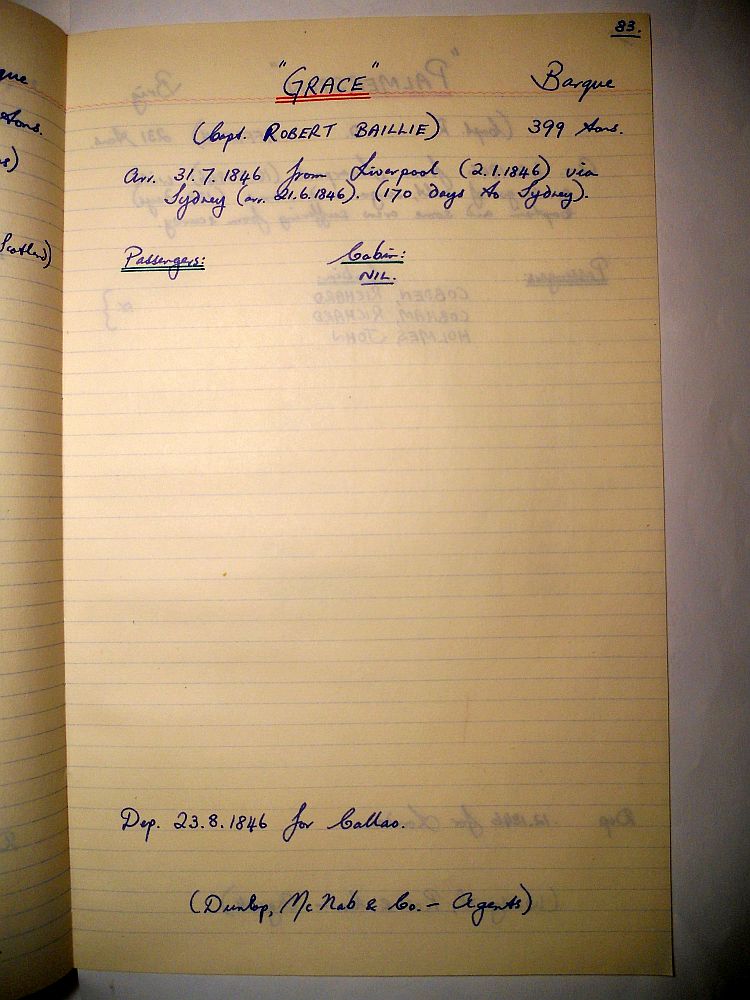 83.
"GRACE" Barque
(Capt. ROBERT BAILLIE) 399 tons.
Arr. 31.7.1846 from Liverpool (2.1.1846) via
Sydney (arr. 21.6.1846). (170 days to Sydney).
Passengers: Cabin:
NIL.
Dep. 23.8.1846 for Callao.
(Dunlop, McNab & Co. - Agents)
tons.
Scotland)